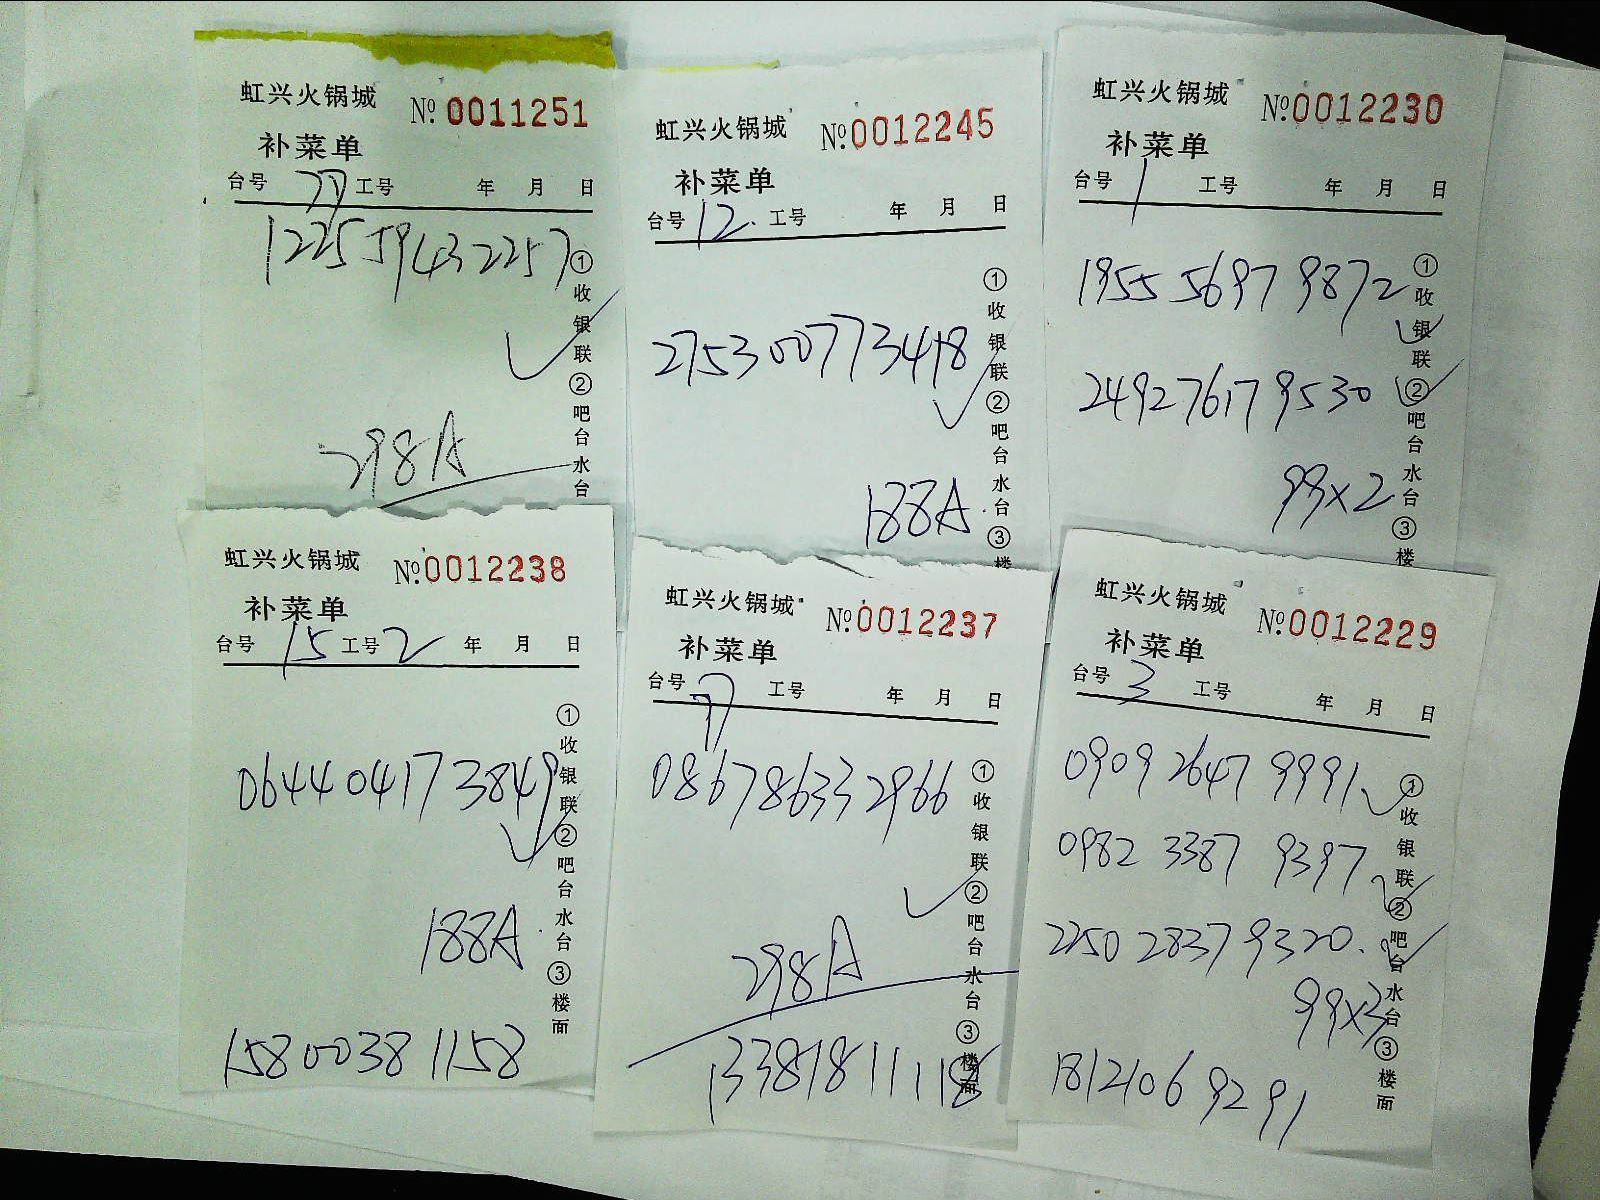 虹兴火锅城 № 0011251
补菜单
台号 77 工号 年 月 日
122559432257
298A
①收银联②吧台水台
虹兴火锅城 №0012245
补菜单
台号 12. 工号 年 月 日
275300773418
188A.
①收银联②吧台水台③楼
虹兴火锅城 №0012230
补菜单
台号 1 工号 年 月 日
1955 5697 9872
249276179530
99x2
①收银联②吧台水台③楼
虹兴火锅城 №0012238
补菜单
台号 15 工号 2 年 月 日
064404173849
188A.
15800381158
①收银联②吧台水台③楼面
虹兴火锅城 №0012237
补菜单
台号 77 工号 年 月 日
086786332966
298A
13381811118
①收银联②吧台水台③楼面
虹兴火锅城 №0012229
补菜单
台号 3 工号 年 月 日
0909 2647 9991
0982 3387 9397
2250 2837 9320.
99x3
18121069291
①收银联②吧台水台③楼面